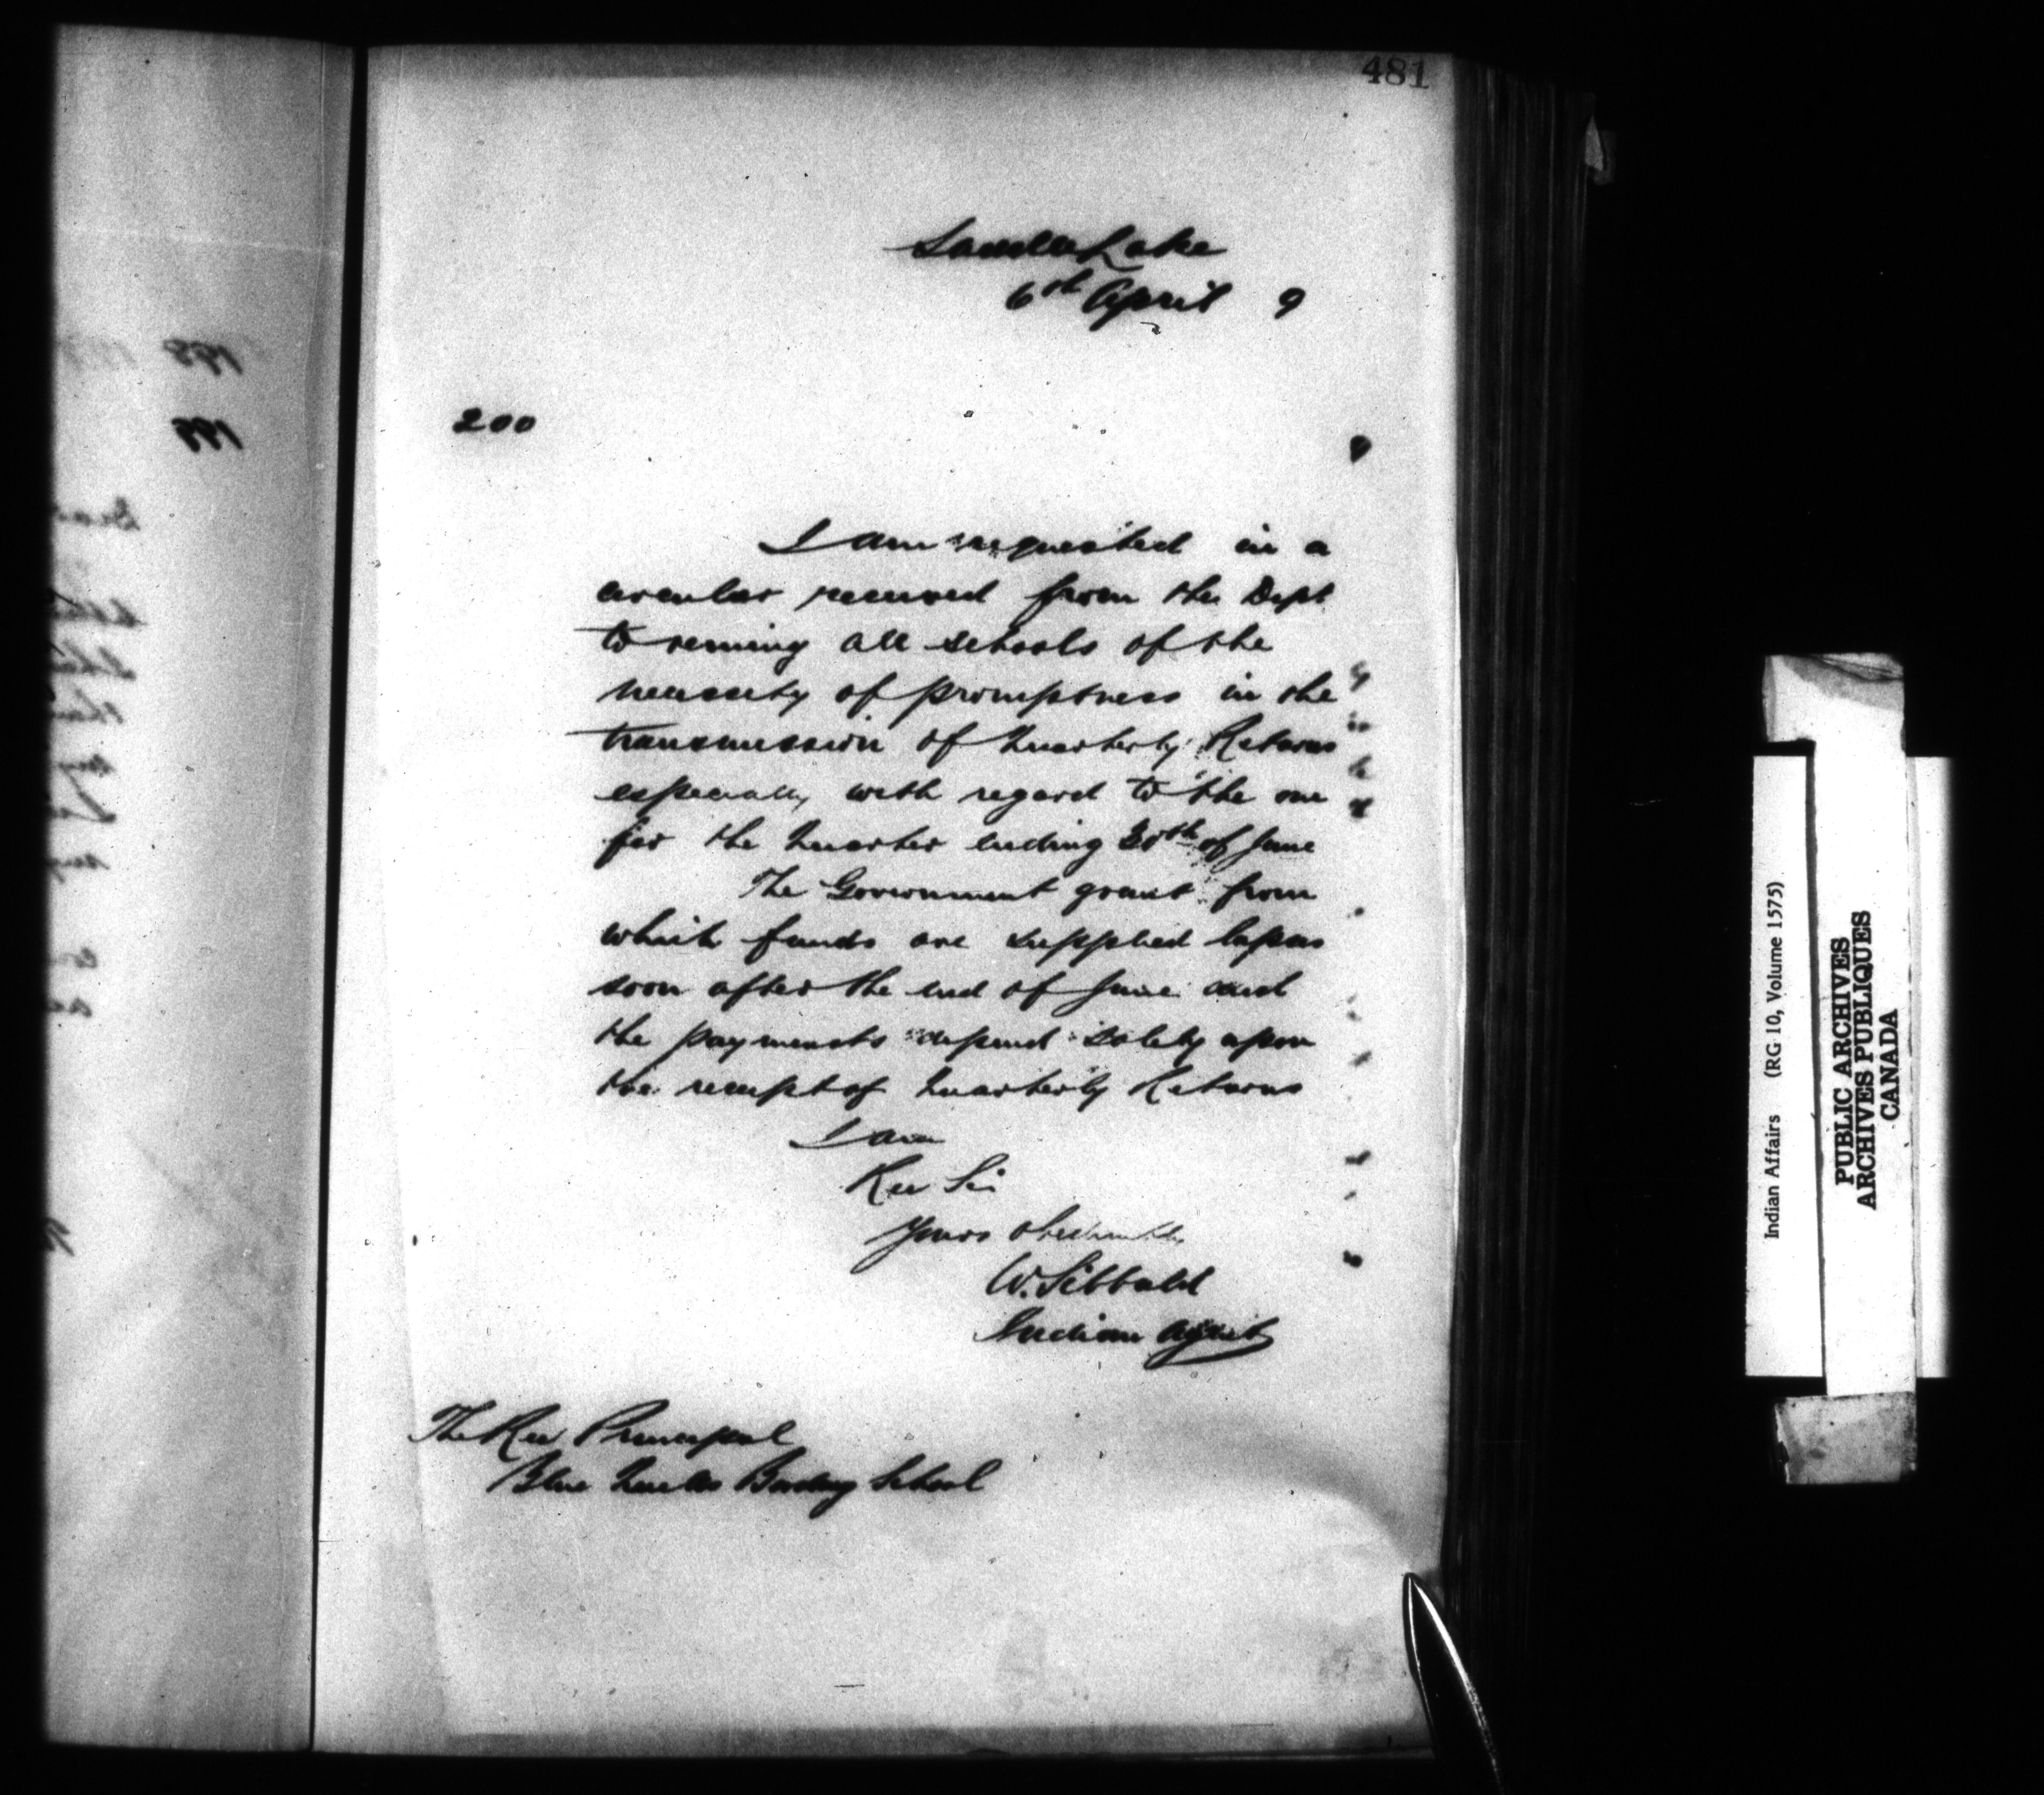 481
Saddle Lake
6th April 9
200
I am requested in a
circular received from the Dept
to reming all schools of the
necessity of promptness in the
transmission of Quarterly Returns
especially with regard to the one
for the Quarter ending 30th of June
The Government grant from
which funds are supplied lapses
soon after the end of June and
the payments depend solely upon
the receipt of Quarterly Returns
I am
Rev Sir
Yours obediently
W. Sibbald
Indian Agent
The Rev Principal
Blue Quills Boarding School
198
199
Indian Affairs (RG 10, Volume 1575)
PUBLIC ARCHIVES
ARCHIVES PUBLIQUES
CANADA